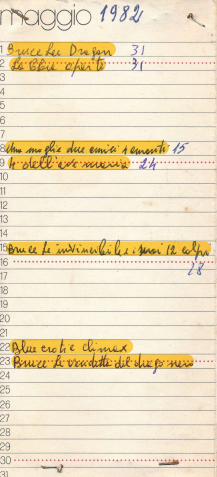 maggio 1982
1 Bruce Lee Dragon 31
2 31
3
4
5
6
7
8 Una moglie due amici 4 amanti 15
9 4 dell'ave maria 24
10
11
12
13
14
15 Bruce Le invincibile i suoi 12 colpi
16 18
17
18
19
20
21
22 Blue erotic climax
23 Bruce la vendetta del drago nero
24
25
26
27
28
29
30
31